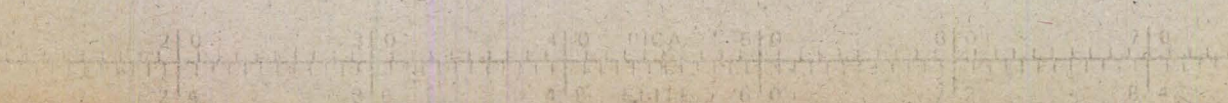 20 30 40 PICA 50 60 70
24 36 48 ELITE 60 72 84